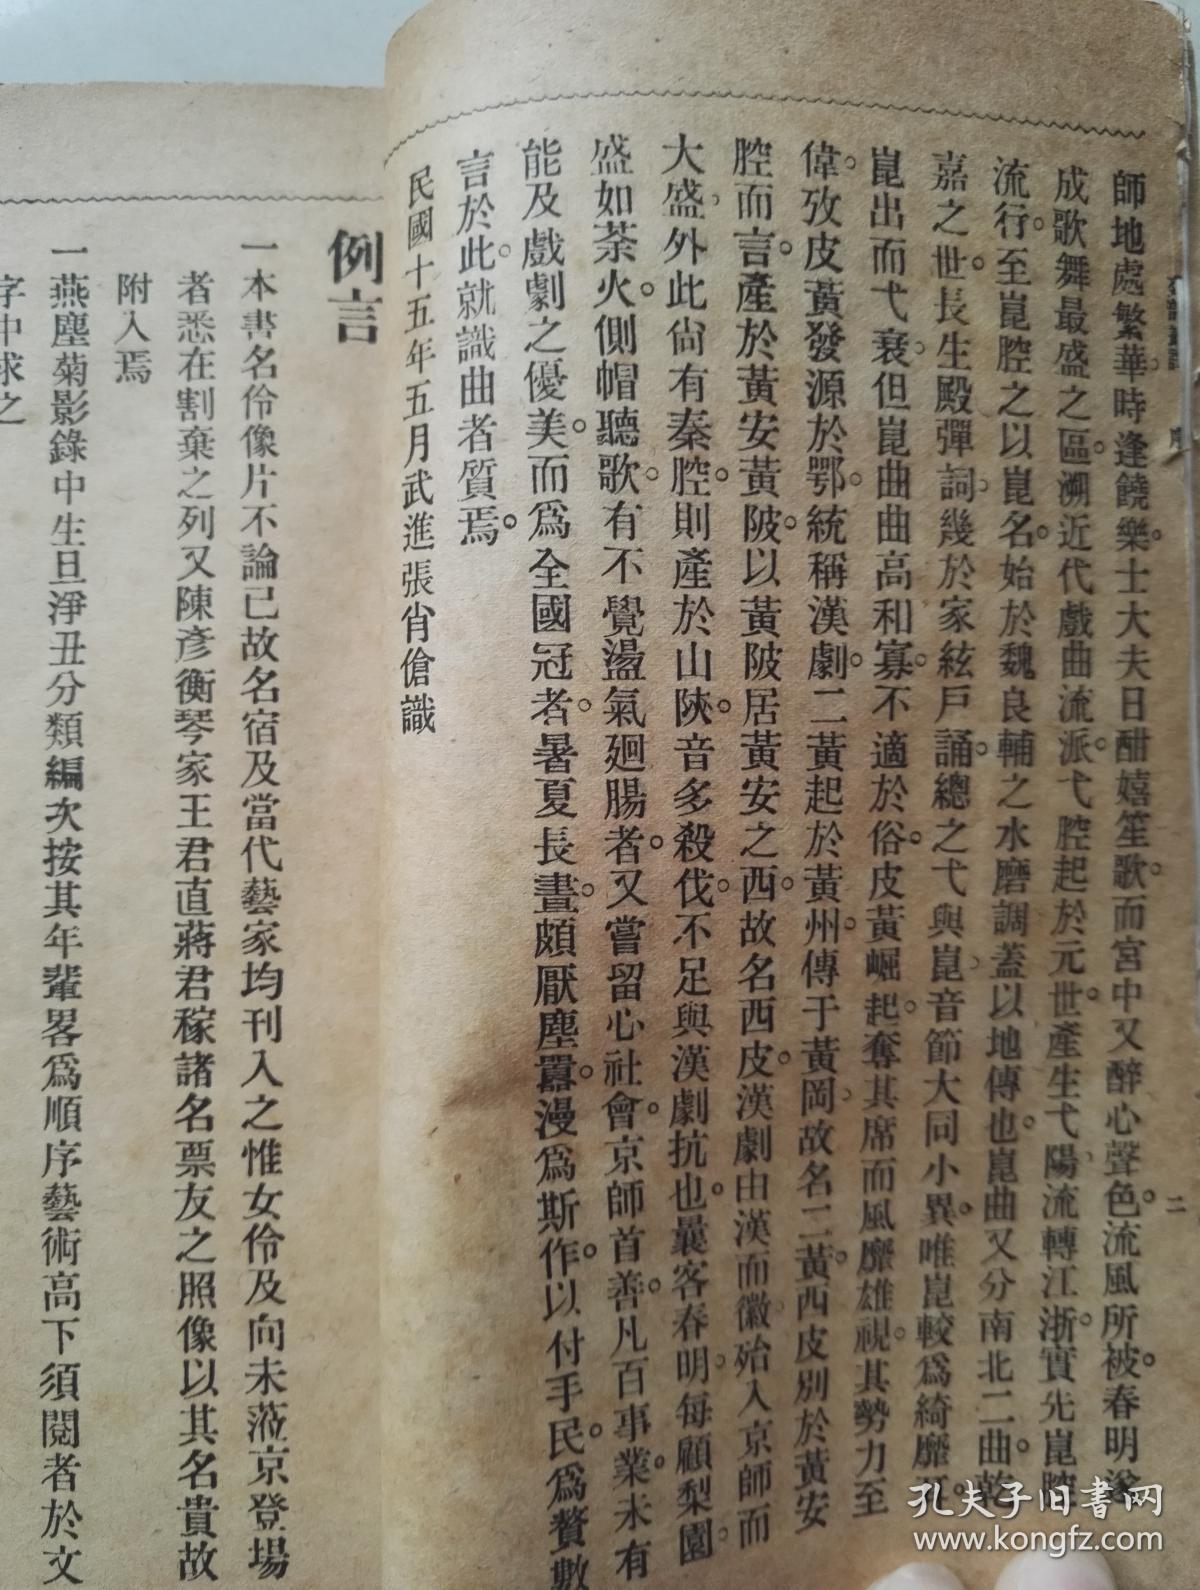 師地處繁華。時逢饒樂。士大夫日酣嬉笙歌。而宮中又醉心聲色。流風所被。春明遂
成歌舞最盛之區。溯近代戲曲流派。弋腔起於元世。產生弋陽。流轉江浙。實先崑腔
流行。至崑腔之以崑名。始於魏良輔之水磨調。蓋以地傳也。崑曲又分南北二曲。乾
嘉之世。長生殿彈詞。幾於家絃戶誦。總之弋與崑音節大同小異。唯崑較爲綺靡耳。
崑出而弋衰。但崑曲曲高和寡。不適於俗。皮黃崛起。奪其席而風靡雄視。其勢力至
偉。攷皮黃發源於鄂。統稱漢劇。二黃起於黃州。傳于黃岡。故名二黃。西皮別於黃安
腔而言。產於黃安黃陂。以黃陂居黃安之西。故名西皮。漢劇由漢而徽。殆入京師而
大盛。外此尙有秦腔。則產於山陝。音多殺伐。不足與漢劇抗也。曩客春明。每顧梨園
盛如荼火。側帽聽歌。有不覺盪氣廻腸者。又嘗留心社會。京師首善。凡百事業。未有
能及戲劇之優美。而爲全國冠者。暑夏長晝。頗厭塵囂。漫爲斯作。以付手民。爲贅數
言於此。就識曲者質焉。
民國十五年五月武進張肖傖識
二
例言
一本書名伶像片不論已故名宿及當代藝家均刊入之惟女伶及向未蒞京登場
者悉在割棄之列又陳彥衡琴家王君直蔣君稼諸名票友之照像以其名貴故
附入焉
一燕塵菊影錄中生旦淨丑分類編次按其年輩畧爲順序藝術高下須閱者於文
字中求之
孔夫子旧书网
www.kongfz.com